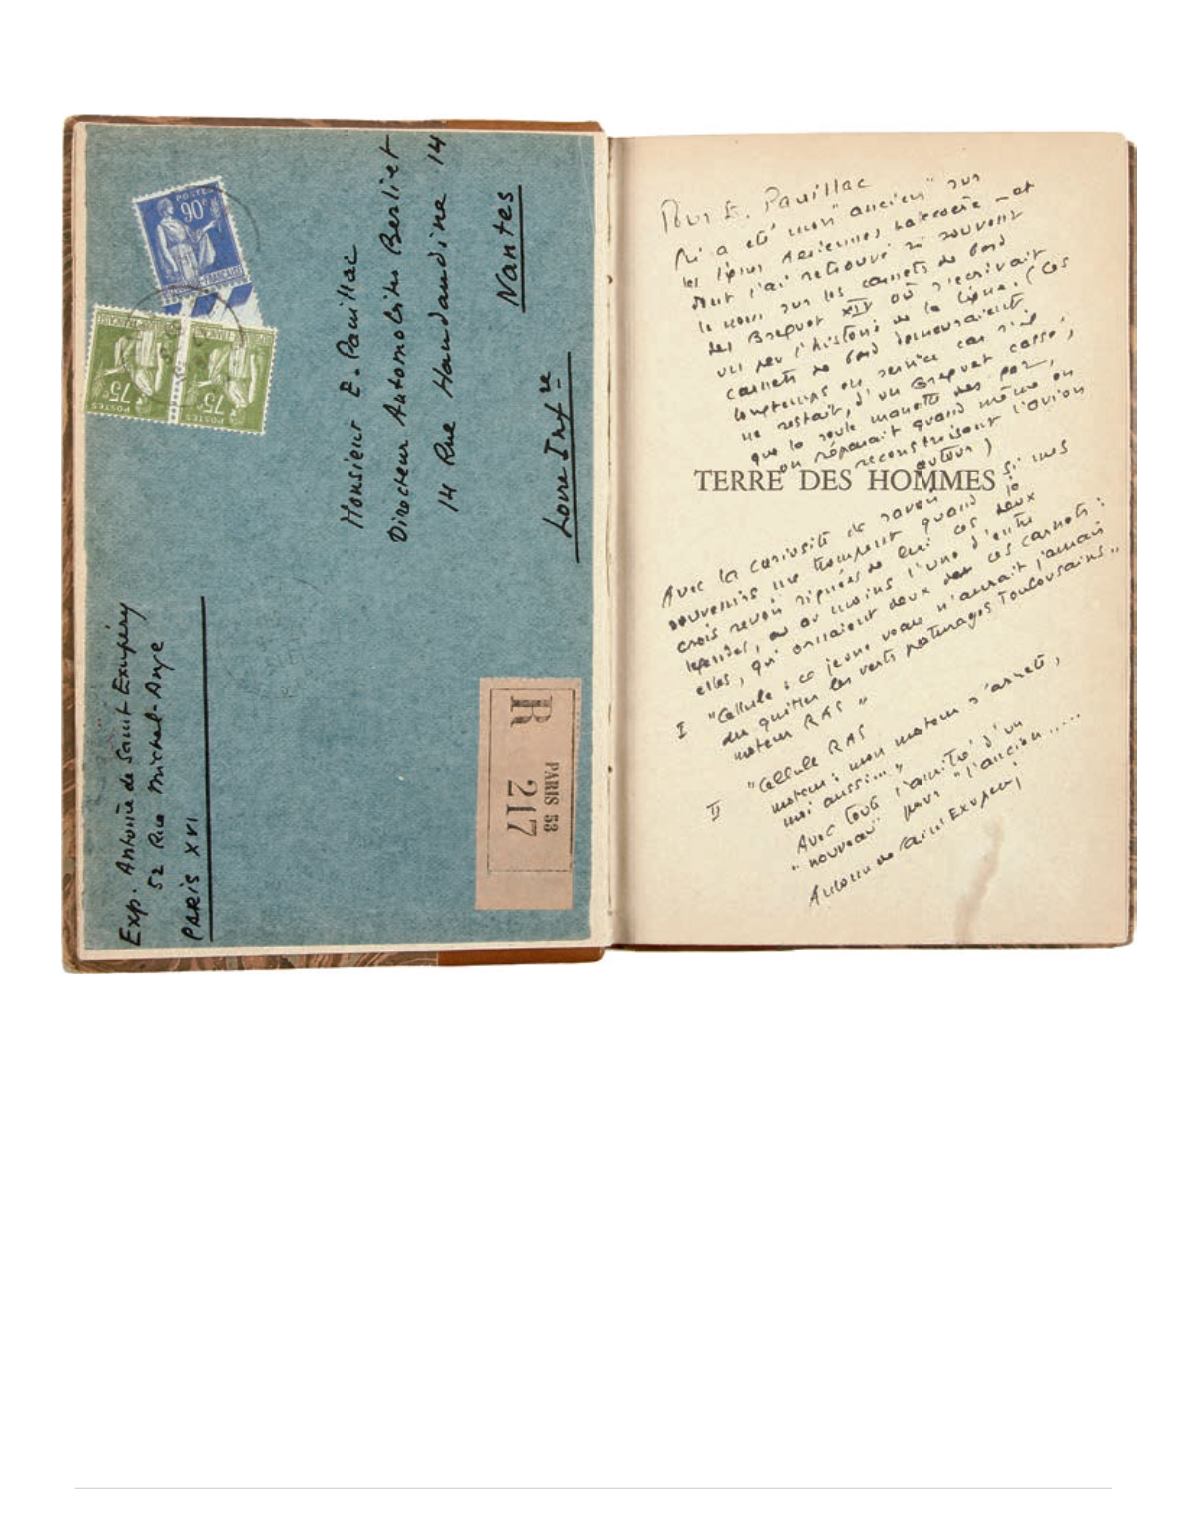 POSTES
90c
POSTES
75c
POSTES
75c
Monsieur E. Pauillac
Directeur Automobiles Berliet
14 Rue Haudaudine 14
Nantes
Loire Infre
Exp. Antoine de Saint Exupéry
52 Rue Michel-Ange
PARIS XVI
R
PARIS 53
217
Pour E. Pauillac
qui a été mon "ancien" sur
les lignes Aeriennes Latecoere - et
dont j'ai retrouvé si souvent
le nom sur les carnets de bord
des Breguet XIV où s'ecrivait
un peu l'histoire de la ligne. (Ces
carnets de bord demeuraient
longtemps en service car s'il
ne restait, d'un Breguet cassé,
que la seule manette des gaz,
on réparait quand même en
reconstruisant l'avion
autour)
TERRE DES HOMMES
Avec la curiosité de savoir si mes
souvenirs me trompent quand je
crois revoir signées de lui ces deux
legendes, ou au moins l'une d'entre
elles, qui ornaient deux de ces carnets :
I "Cellule : ce jeune veau n'aurait jamais
du quitter les verts paturages Toulousains"
moteur RAS"
II "Cellule RAS
moteur : mon moteur s'arrete,
moi aussi..."
Avec toute l'amitié d'un
"nouveau" pour "l'ancien.....
Antoine de Saint Exupéry